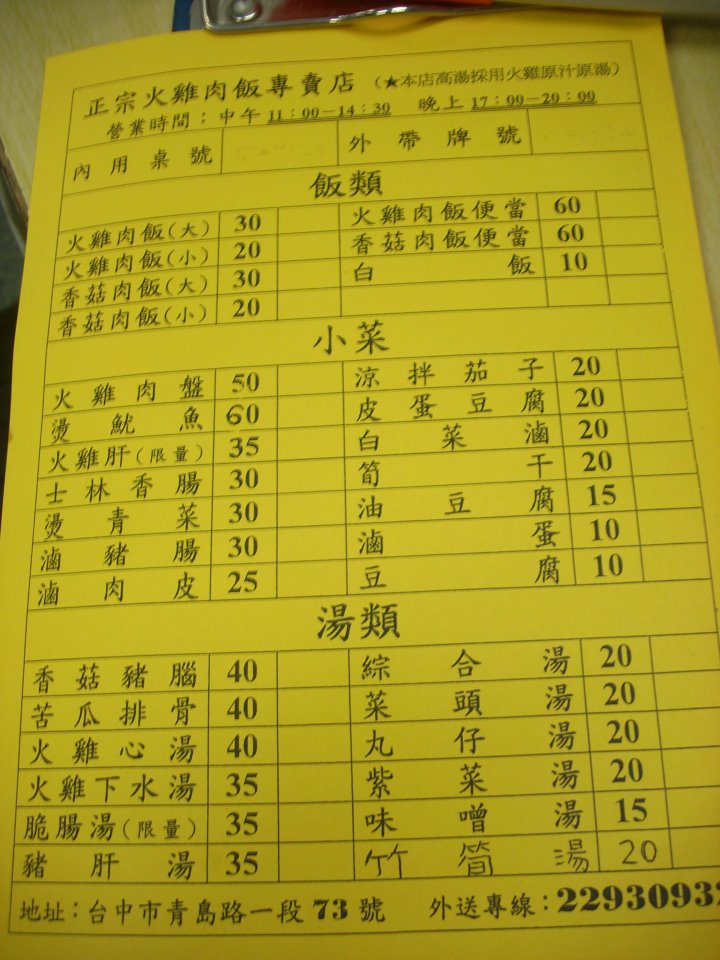 正宗火雞肉飯專賣店 (★本店高湯採用火雞原汁原湯)
營業時間：中午 11：00－14：30 晚上 17：00－20：00
內用桌號 外帶牌號
飯類
火雞肉飯(大) 30 火雞肉飯便當 60
火雞肉飯(小) 20 香菇肉飯便當 60
香菇肉飯(大) 30 白飯 10
香菇肉飯(小) 20
小菜
火雞肉盤 50 涼拌茄子 20
燙魷魚 60 皮蛋豆腐 20
火雞肝(限量) 35 白菜滷 20
士林香腸 30 筍干 20
燙青菜 30 油豆腐 15
滷豬腸 30 滷蛋 10
滷肉皮 25 豆腐 10
湯類
香菇豬腦 40 綜合湯 20
苦瓜排骨 40 菜頭湯 20
火雞心湯 40 丸仔湯 20
火雞下水湯 35 紫菜湯 20
脆腸湯(限量) 35 味噌湯 15
豬肝湯 35 竹筍湯 20
地址：台中市青島路一段 73 號 外送專線：22930932